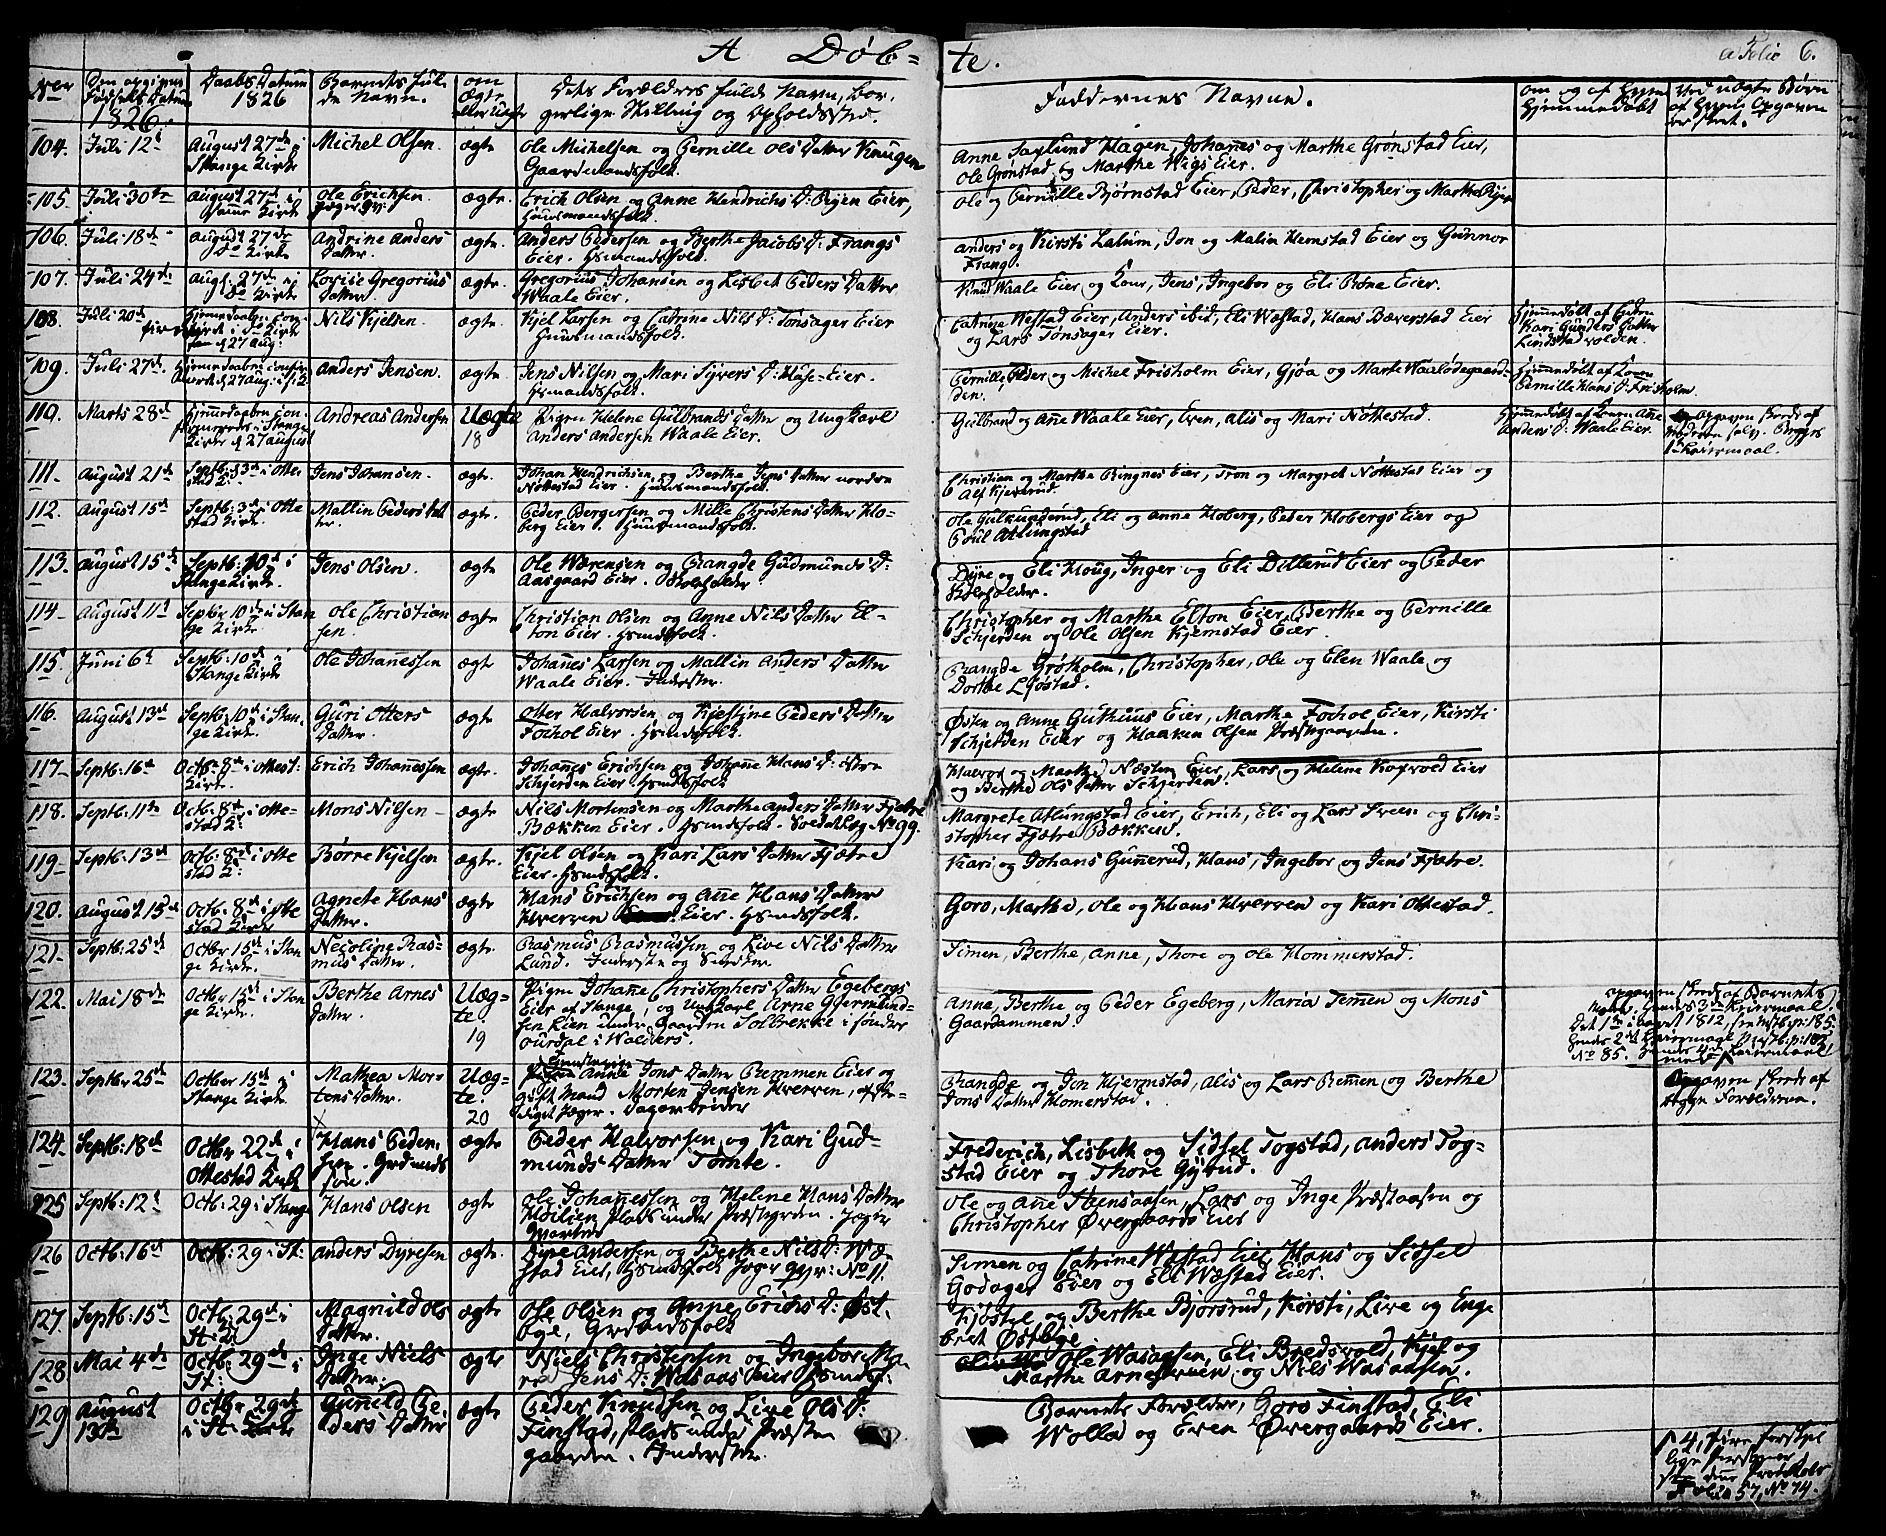 A Døb=
te.
a Folio 6.
Den opgivne Fødsels Datum 1826
Daabs Datum 1826
Barnets fulde Navn.
om ægte eller uægte
Dets Forældres fulde Navn, borgerlige Stilling og Opholdssted.
Faddernes Navne.
om og af hvem hjemmedøbt
Ved uægte Børn af hvem Opgaven er skeet.
104. Juli 12t August 27de i Stange Kirke Michel Olsen. ægte Ole Michelsen og Pernille Ols Datter
Gaardmandsfolk.
Hagen, Johañes og Marthe Grønstad Eier,
Ole Grønstad og Marthe Wigs Eier.
105. Juli 30te August 27de i Kirke Ole Erichsen. ægte. Erich Olsen og Anne Hendrichs D: Eier,
Huusmandsfolk.
Ole og Pernille Bjørnstad Eier, Peder, Christopher og Marthe
106. Juli 18de August 27de do Kirke Andrine Anders Datter. ægte. Anders Pedersen og Berthe Jacobs D: Frangs
Eier. Hsmandsfolk.
Anders og Kirsti Lalum, Jon og Malin Hemstad Eier og Gunnor
Frang.
107. Juli 24de Augs. 27de i do Kirke Lovise Gregorius Datter ægte. Gregorius Johansen og Lisbet Peders Datter
Waale Eier.
Knud Waale Eier og Kone, Jens, Ingebor og Eli Røne Eier.
108. Juli 20de i do Kirke den 27 Aug: Nils Kjelsen. ægte. Kjel Larsen og Catrine Nils D: Tønsager Eier
Huusmandsfolk.
Catrine Westad Eier, Anders ibid, Eli Wæstad, Hans Bæverstad Eier
og Lars Tønsager Eier.
Hjemmedøbt af Enken
Kari Gunders Datter
Lindstadvolden.
109. Juli 27de Anders Jensen. ægte. Jens Nilsen og Mari Syvers D: Huse-Eier.
Hsmandsfolk.
Pernille, Peder og Michel Frisholm Eier, Gjøa og Marte Waalødegaarden.
Hjemmedøbt af Konen
Pernille Hans D: Frisholm.
110. Marts 28de Kirke d 27 August Andreas Andersen Uægte 18 Pigen Helene Gulbrands Datter og Ungkarl
Anders Andersen Waale Eier.
Gulbrand og Añe Waale Eier, Even, Alis og Mari Nøttestad.
Hjemmedøbt af Konen Añe
Anders D: Waale Eier.
Opgaven skeede af
Moderen selv. Begges
1te Leiermaal.
111. August 21de Septb: 3de i Ottestad K: Jens Johansen. ægte. Johan Hendrichsen og Berthe Jens Datter nordre
Nøttestad Eier. Huusmandsfolk.
Christian og Marthe Ringnes Eier, Tron og Margret Nøttestad Eier og
112. August 15de Septb: 3de i Ottestad Kirke. Mallin Peders Datter. ægte. Peder Bergersen og Mille Christens Datter Hoberg Eier. Huusmandsfolk.
Ole Gulkunderud, Eli og Anne Hoberg, Peder Hobergs Eier og
Poul Atlungstad
113. August 15de Septb: 10de i Stange Kirke. Jens Olsen. ægte Ole Wærensen og Rangde Gudmunds D:
Aasgaard Eier. Skoleholder
Dyre og Eli Houg, Inger og Eli Dillerud Eier og Peder
Skoleholder.
114. August 11te Septbr 10de i Stange Kirke Ole Christiansen. ægte Christian Olsen og Anne Nils Datter Elton Eier. Hsmdsfolk.
Christopher og Marthe Elton Eier, Berthe og Pernille
Schjerden og Ole Olsen Hjemstad Eier.
115. Juni 6te Septb. 10de i Stange Kirke Ole Johañessen ægte Johañes Larsen og Mallin Anders Datter
Waale Eier. Inderster.
Rangde Grøtholm, Christopher, Ole og Elen Waale og
Dorthe Ljøstad.
116. August 13de Septb. 10de i Stange Kirke. Guri Otters Datter. ægte Otter Halvorsen og Kjestine Peders Datter
Fochol Eier. Hsmdsfolk.
Østen og Anne Guthuus Eier, Marthe Fochol Eier, Kirsti
Schjerden Eier og Haaken Olsen Præstegaarden.
117. Septb: 16de Octb. 8de i Ottest: Kirke. Erich Johañessen ægte. Johañes Erichsen og Johañe Hans D: østre
Schjerden Eier. Hsmdsfolk.
Halvor og Marthe Næsten Eier, Lars og Helene Kafvold Eier
og Berthe Ols Datter Schjerden.
118. Septb: 11te Octb. 8de i Ottestad K: Mons Nilsen ægte Nils Mortensen og Marthe Anders Datter Fjætre
Bækken Eier. Hsmdsfolk. Soldat Læg No 99.
Margrete Atlungstad Eier, Erich, Eli og Lars Sveen og Christopher Fjætre Bækken.
119. Septb: 13de Octb: 8de i Ottestad K: Børre Kjelsen ægte. Kjel Olsen og Kari Lars Datter Fjætre
Eier. Hsmdsfolk.
Kari og Johans Guñerud, Hans, Ingebor og Jens Fjætre.
120. August 15de Octb. 8de i Ottestad Kirke Agnete Hans Datter. ægte Hans Erichsen og Añe Hans Datter
Hverven Eier. Hsmdsfolk.
Goro, Marthe, Ole og Hans Hverven og Kari Ottestad.
121. Septb: 25de Octbr 15de i Stange Kirke. Nicoline Rasmus Datter. ægte. Rasmus Rasmussen og Live Nils Datter
Lund. Inderste og Snedker
Simen, Berthe, Anne, Thore og Ole Hommerstad.
122. Mai 18de Octbr 15de i Stange Kirke. Berthe Arnes Datter. Uægte 19 Pigen Johañe Christophers Datter Egebergs
Eier af Stange, og Ungkarl Arne Gjermundsen Lien under Gaarden Solbrekke i søndre
Ourdal i Walders.
Anne, Berthe og Peder Egeberg, Maria Temen og Mons
Gaardammen.
Opgaven skeede af Barnets
Moder. Hendes 3de Leiermaal.
Det 1te i Aaret 1812,
Hendes 2det Leiermaal
No 85.
123. Septbr 25de Octber 15de i Stange Kirke. Mathea Mortens Datter. Uægte. 20 Anne Jons Datter Remmen Eier og
gift Mand Morten Jensen Hverven, Jæger. Dagarbeider
Rangde og Jon Hjemstad, Alis og Lars Remen og Berthe
Jons Datter Homerstad.
Opgaven skeede af
begge Forældrene.
124. Septb: 18de Octbr 22de i Ottestad Kirke Hans Pedersen. ægte Peder Halvorsen og Kari Gudmunds Datter Tomte.
Frederich, Lisbeth og Sidsel Togstad, Anders Togstad Eier og Thore Gyrud.
125 Septb: 12te Octb: 29 i Stange Hans Olsen ægte Ole Johañessen og Helene Hans Datter
Plads under Præstegrden. Jæger
Ole og Añe Stensaasen, Lars og Inge Præstaasen og
Christopher Øvergaards Eier
126 Octb: 16de Octb: 29 i St: Anders Dyresen ægte. Dyre Andersen og Berthe Nils D: Wæstad Eier, Hsmdsfolk Jæger No 11.
Simen og Catrine Wæstad Eier, Hans og Sidsel
Godager Eier og Eli Wæstad Eier.
127. Septb: 15de Octb. 29de i St: K: Magnild Ols Datter. ægte Ole Olsen og Anne Erichs D: Østbye, Grdmdsfolk
Kjøstel og Berthe Bjørsrud, Kirsti, Live og Engebret Østbye
128 Mai 4de Octb: 29de i St: Inge Niels Datter: ægte Niels Christensen og Ingebor Maria Jens D: Wasaas Eier Hsmdsf:
Ole Wasaasen, Eli Bredsvold, Kjel og
Marthe Arnestuen og Nils Wasaasen.
129 August 13de Octbr 29de i St: Kirke Gunild Peders Datter ægte Peder Knudsen og Live Ols D:
Finstad, Plads under Præstegaarden. Inderster.
Barnets Forældre, Goro Finstad, Eli
Wolla og Even Øvergaards Eier.
Folio 57, No 74.